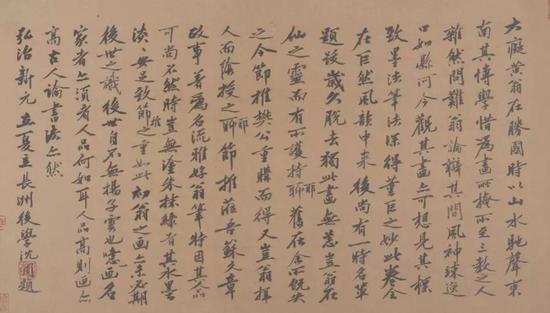 大癡黃翁在勝國時以山水馳聲東
南其博學惜為畫所掩所至三教之人
雜然問難翁論辯其間風神竦逸
口如懸河今觀其畫亦可想見其標
致墨法筆法深得董巨之妙此卷全
在巨然風韻中來後尚有一時名輩
題跋歲久脫去獨此畫無恙豈翁在
仙之靈而有所護持耶舊在余所既失
之今節推樊公重購而得又豈翁擇
人而陰授之耶節推蒞吾蘇文章
政事著為名流雅好翁筆特因其人品
可尚不然時豈無塗朱抹綠者其水墨淡
淡安足致節推之重如此初翁之画亦未必期
後世之識後世自不無揚子雲也噫画名
家者亦須看人品何如耳人品高則画亦
高古人論書法亦然
弘治新元立夏長洲後學沈周題